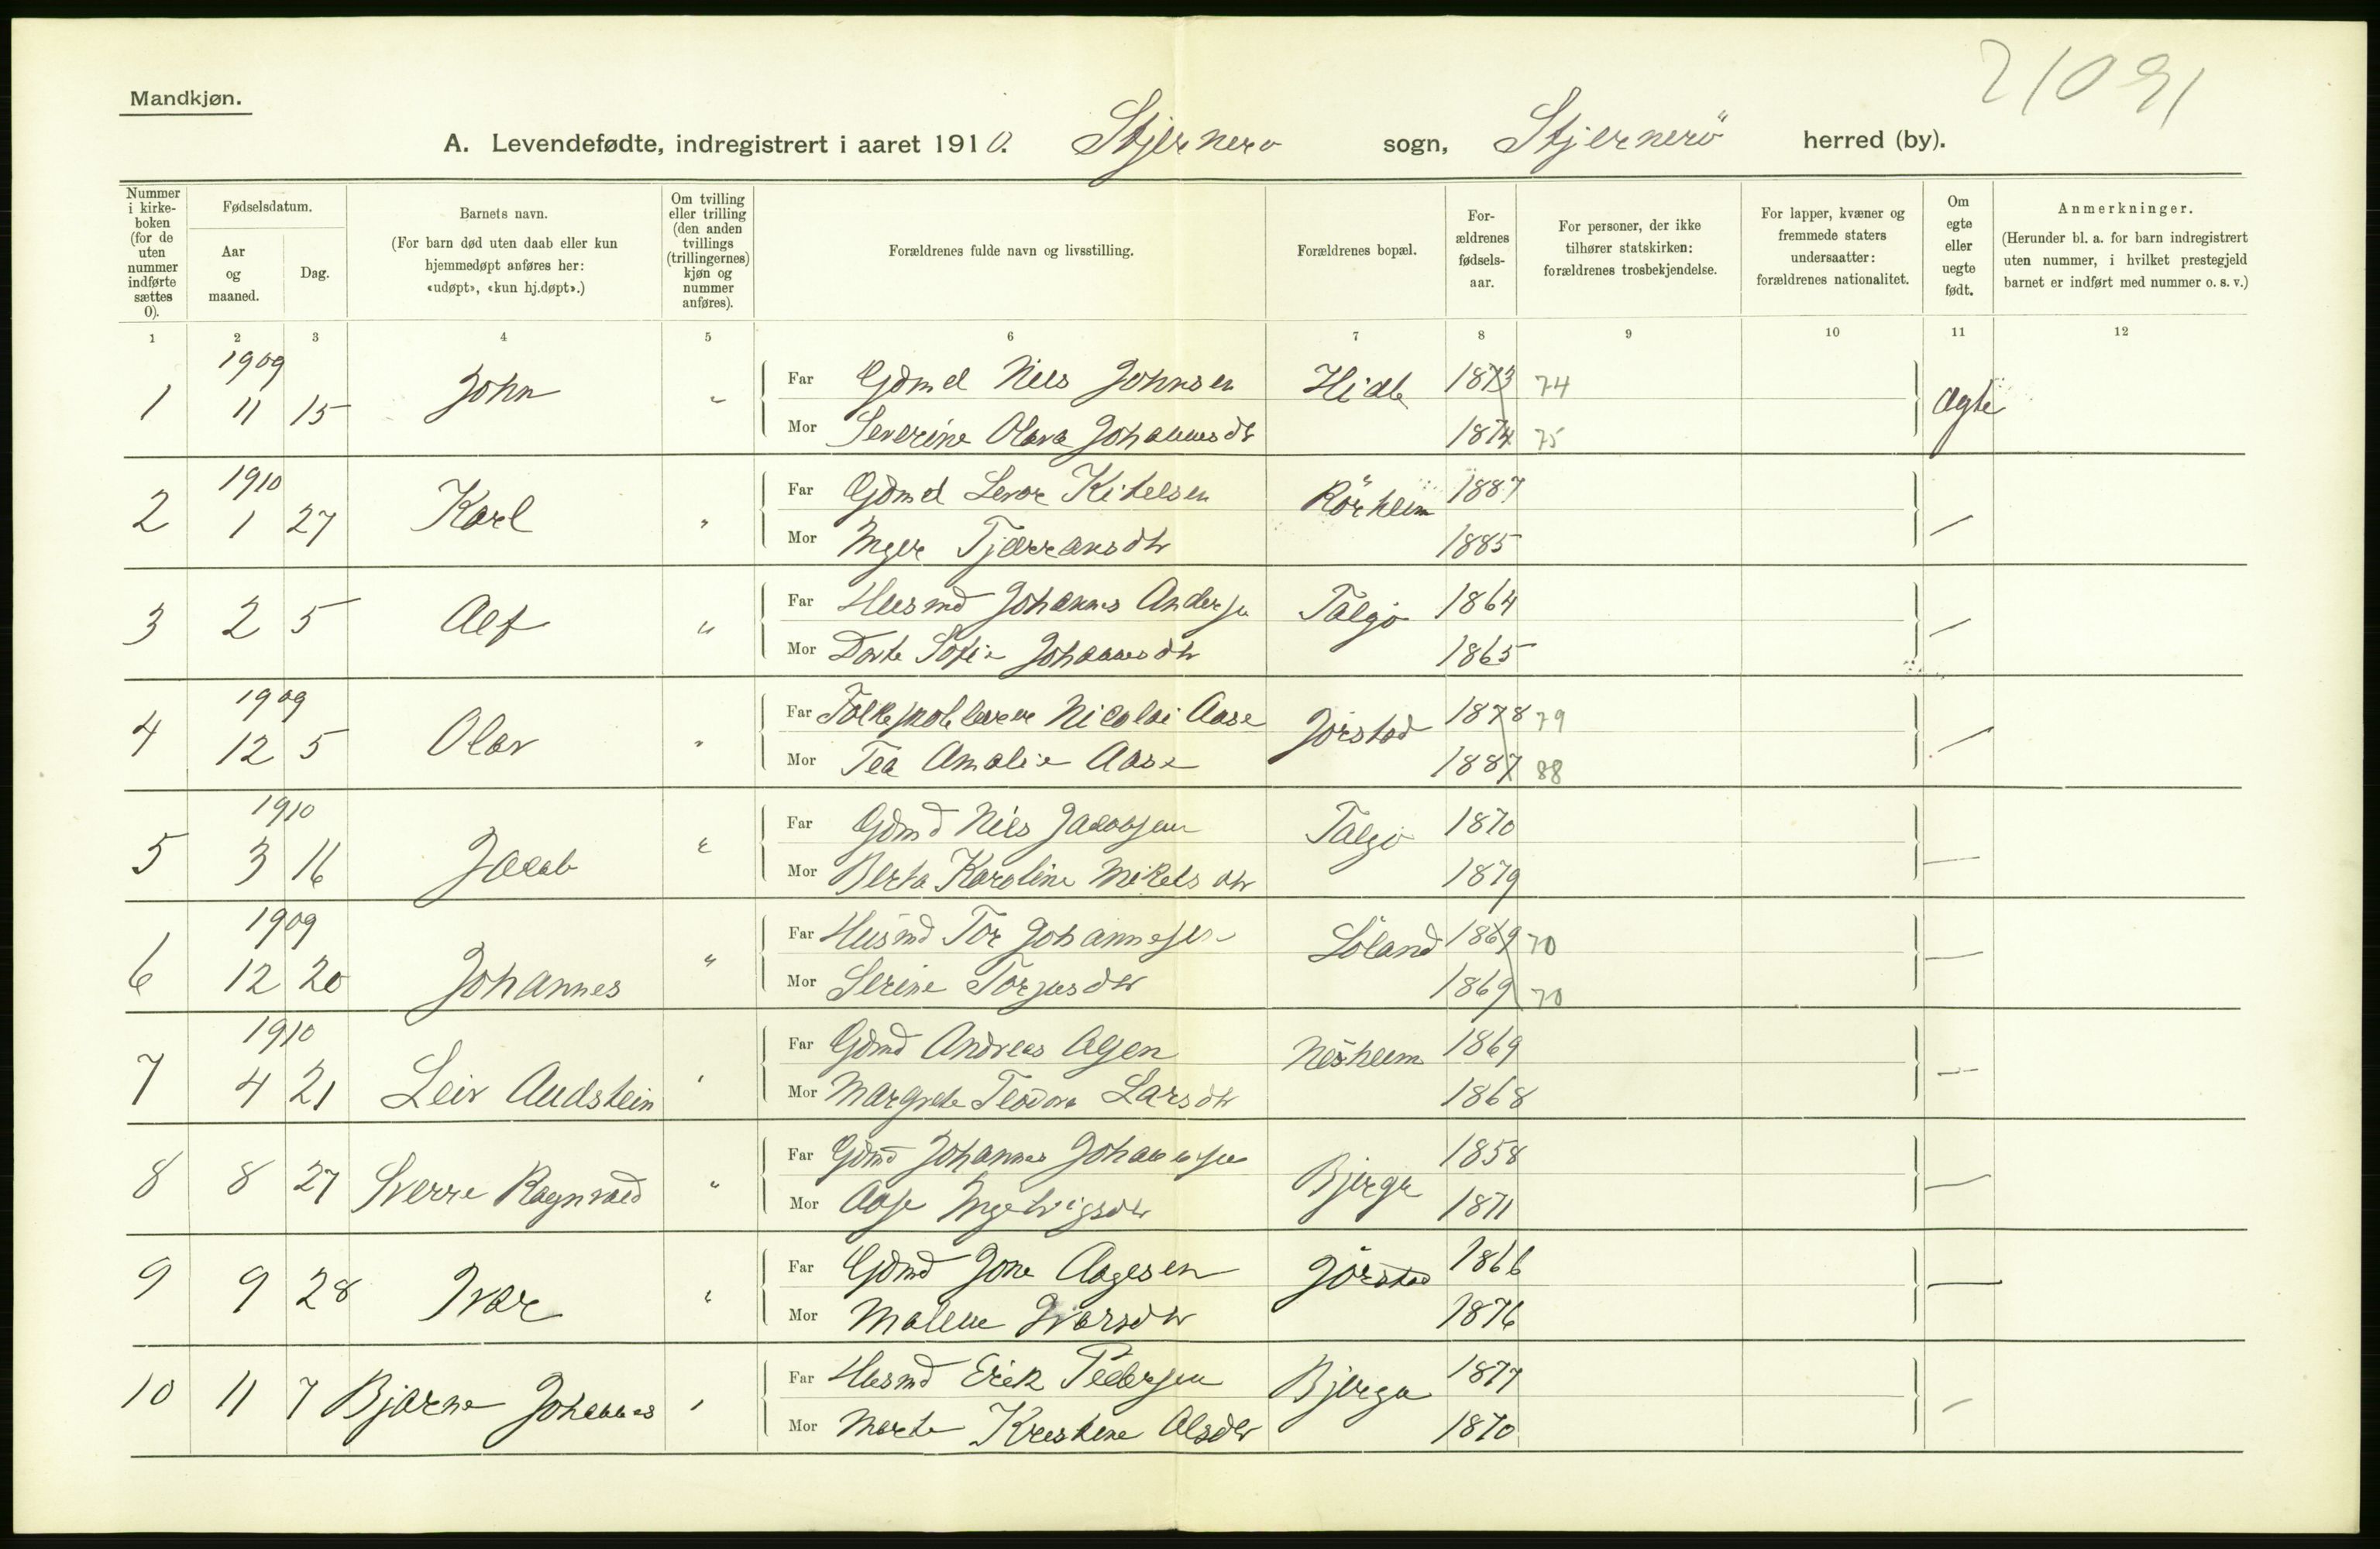 21091
Mandkjøn.
A. Levendefødte, indregistrert i aaret 1910. Stjernerø sogn, Stjernerö herred (by).
Nummer i kirke-boken (for de uten nummer indførte sættes 0).
Fødselsdatum.
Aar og maaned.
Dag.
Barnets navn.
(For barn død uten daab eller kun hjemmedøpt anføres her: «udøpt», «kun hj.døpt».)
Om tvilling eller trilling (den anden tvillings (trillingernes) kjøn og nummer anføres).
Forældrenes fulde navn og livsstilling.
Forældrenes bopæl.
For-ældrenes fødsels-aar.
For personer, der ikke tilhører statskirken: forældrenes trosbekjendelse.
For lapper, kvæner og fremmede staters undersaatter: forældrenes nationalitet.
Om egte eller uegte født.
Anmerkninger.
(Herunder bl. a. for barn indregistrert uten nummer, i hvilket prestegjeld barnet er indført med nummer o. s. v.)
1 2 3 4 5 6 7 8 9 10 11 12
1 1909 11 15 John " Far Gdmd Nils Johnsen Hidle 1873 74 ægte
Mor Severine Olava Johannesdtr 1874 75
2 1910 1 27 Karl " Far Gdmd Levor Kitelsen Rörheim 1887 —
Mor Inger Tjærransdtr 1885
3 2 5 Alf " Far Husmd Johannes Andersen Talgø 1864 —
Mor Dorte Sofie Johannesdtr 1865
4 1909 12 5 Olav " Far Folkeskolelærer Nicolai Aase Jørstad 1878 79 —
Mor Tea Amalie Aase 1887 88
5 1910 3 16 Jacob " Far Gdmd Nils Jacobsen Talgø 1870 —
Mor Berta Karoline Mikelsdtr 1879
6 1909 12 20 Johannes " Far Husmd Tor Johannesen Löland 1869 70 —
Mor Serine Torjusdtr 1869 70
7 1910 4 21 Leiv Audstein " Far Gdmd Andreas Agen Nesheim 1869 —
Mor Margrete Teodora Larsdtr 1868
8 8 27 Sverre Ragnvald " Far Gdmd Johannes Johannesen Bjerge 1858 —
Mor Aase Ingebrigsdtr 1871
9 9 28 Ivar " Far Gdmd Jone Aagesen Jörstad 1866 —
Mor Malene Ivarsdtr 1876
10 11 7 Bjarne Johannes " Far Husmd Erik Pedersen Bjerga 1877 —
Mor Marta Kristine Olsdtr 1870